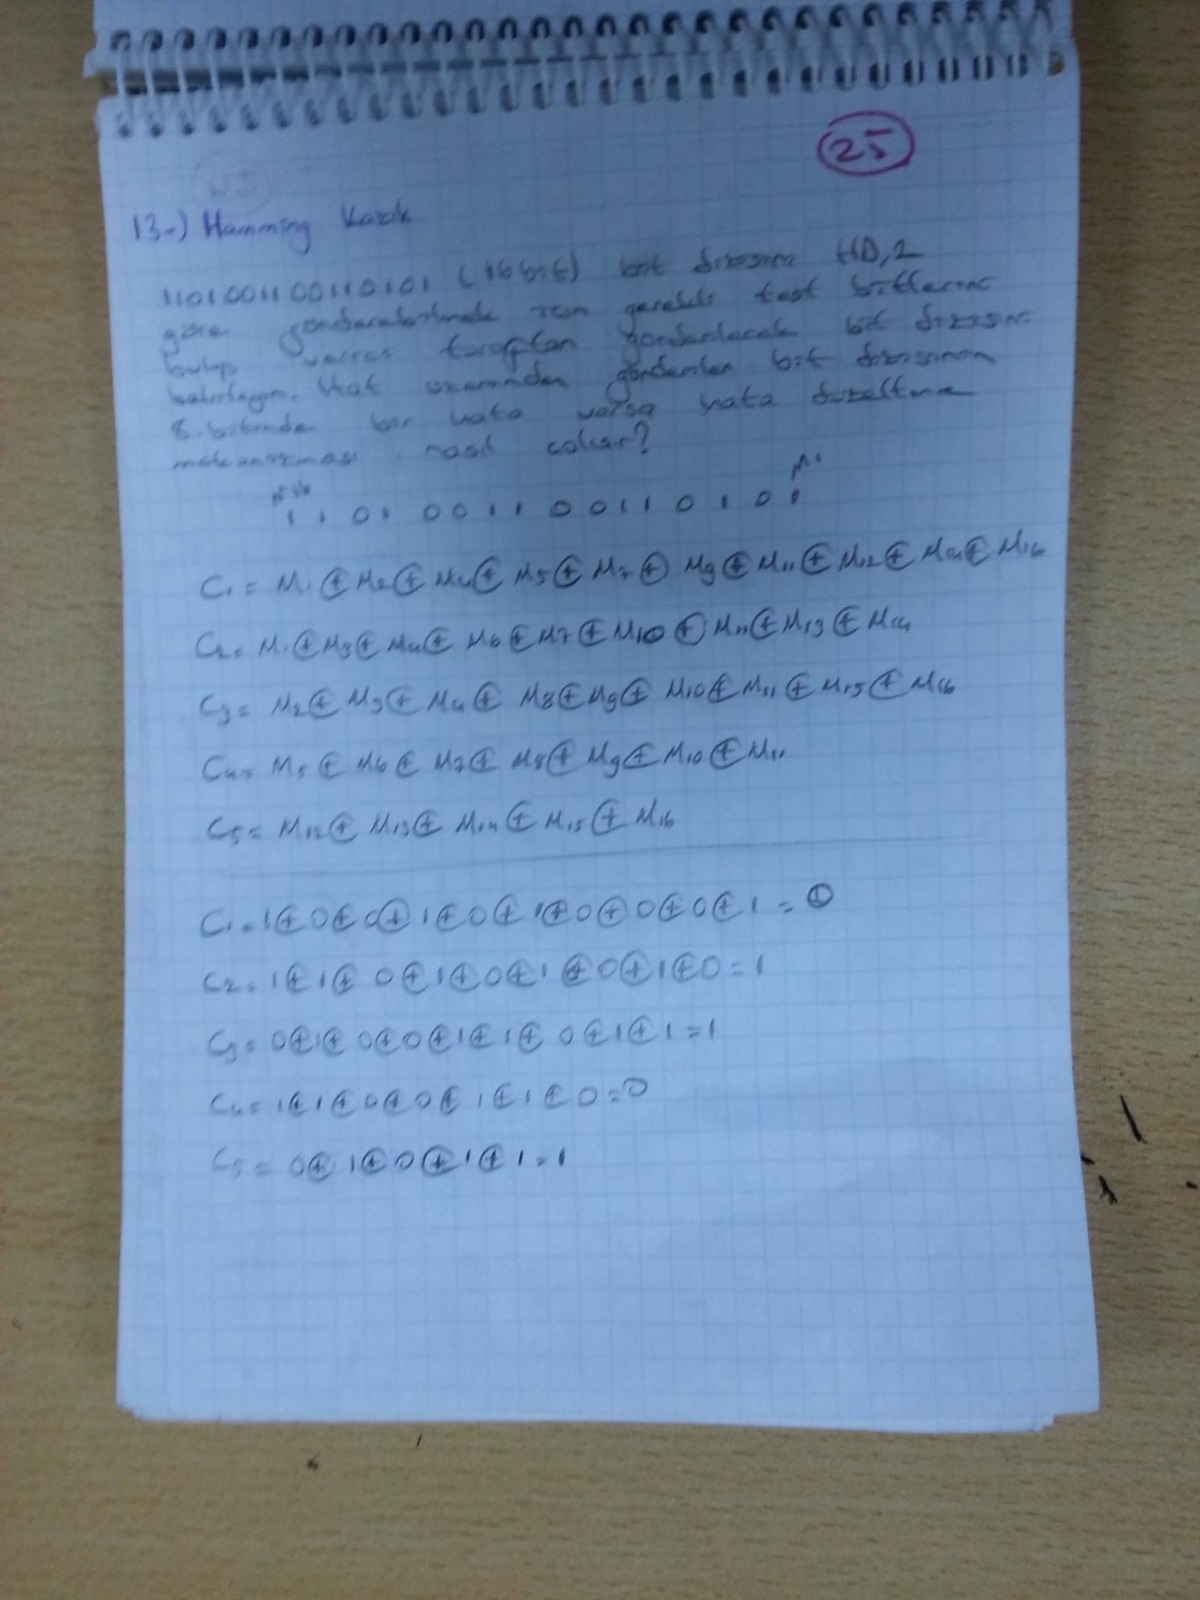 25
13-) Hamming Kodu
1101001100110101 (16 bit) bit dizisini HD,2
göre gönderebilmek için gerekli test bitlerini
bulup verici taraftan gönderilecek bit dizisini
belirleyin. Hat üzerinden gönderilen bit dizisinin
8. bitinde bir hata varsa hata düzeltme
mekanizması nasıl çalışır?
M16 M1
1 1 0 1 0 0 1 1 0 0 1 1 0 1 0
C1 = M1 ⊕ M2 ⊕ M4 ⊕ M5 ⊕ M7 ⊕ M9 ⊕ M11 ⊕ M12 ⊕ M14 ⊕ M16
C2 = M1 ⊕ M3 ⊕ M4 ⊕ M6 ⊕ M7 ⊕ M10 ⊕ M11 ⊕ M13 ⊕ M14
C3 = M2 ⊕ M3 ⊕ M4 ⊕ M8 ⊕ M9 ⊕ M10 ⊕ M11 ⊕ M15 ⊕ M16
C4 = M5 ⊕ M6 ⊕ M7 ⊕ M8 ⊕ M9 ⊕ M10 ⊕ M11
C5 = M12 ⊕ M13 ⊕ M14 ⊕ M15 ⊕ M16
C1 = 1 ⊕ 0 ⊕ 0 ⊕ 1 ⊕ 0 ⊕ 1 ⊕ 0 ⊕ 0 ⊕ 0 ⊕ 1 =
C2 = 1 ⊕ 1 ⊕ 0 ⊕ 1 ⊕ 0 ⊕ 1 ⊕ 0 ⊕ 1 ⊕ 0 = 1
C3 = 0 ⊕ 1 ⊕ 0 ⊕ 0 ⊕ 1 ⊕ 1 ⊕ 0 ⊕ 1 ⊕ 1 = 1
C4 = 1 ⊕ 1 ⊕ 0 ⊕ 0 ⊕ 1 ⊕ 1 ⊕ 0 = 0
C5 = 0 ⊕ 1 ⊕ 0 ⊕ 1 ⊕ 1 = 1